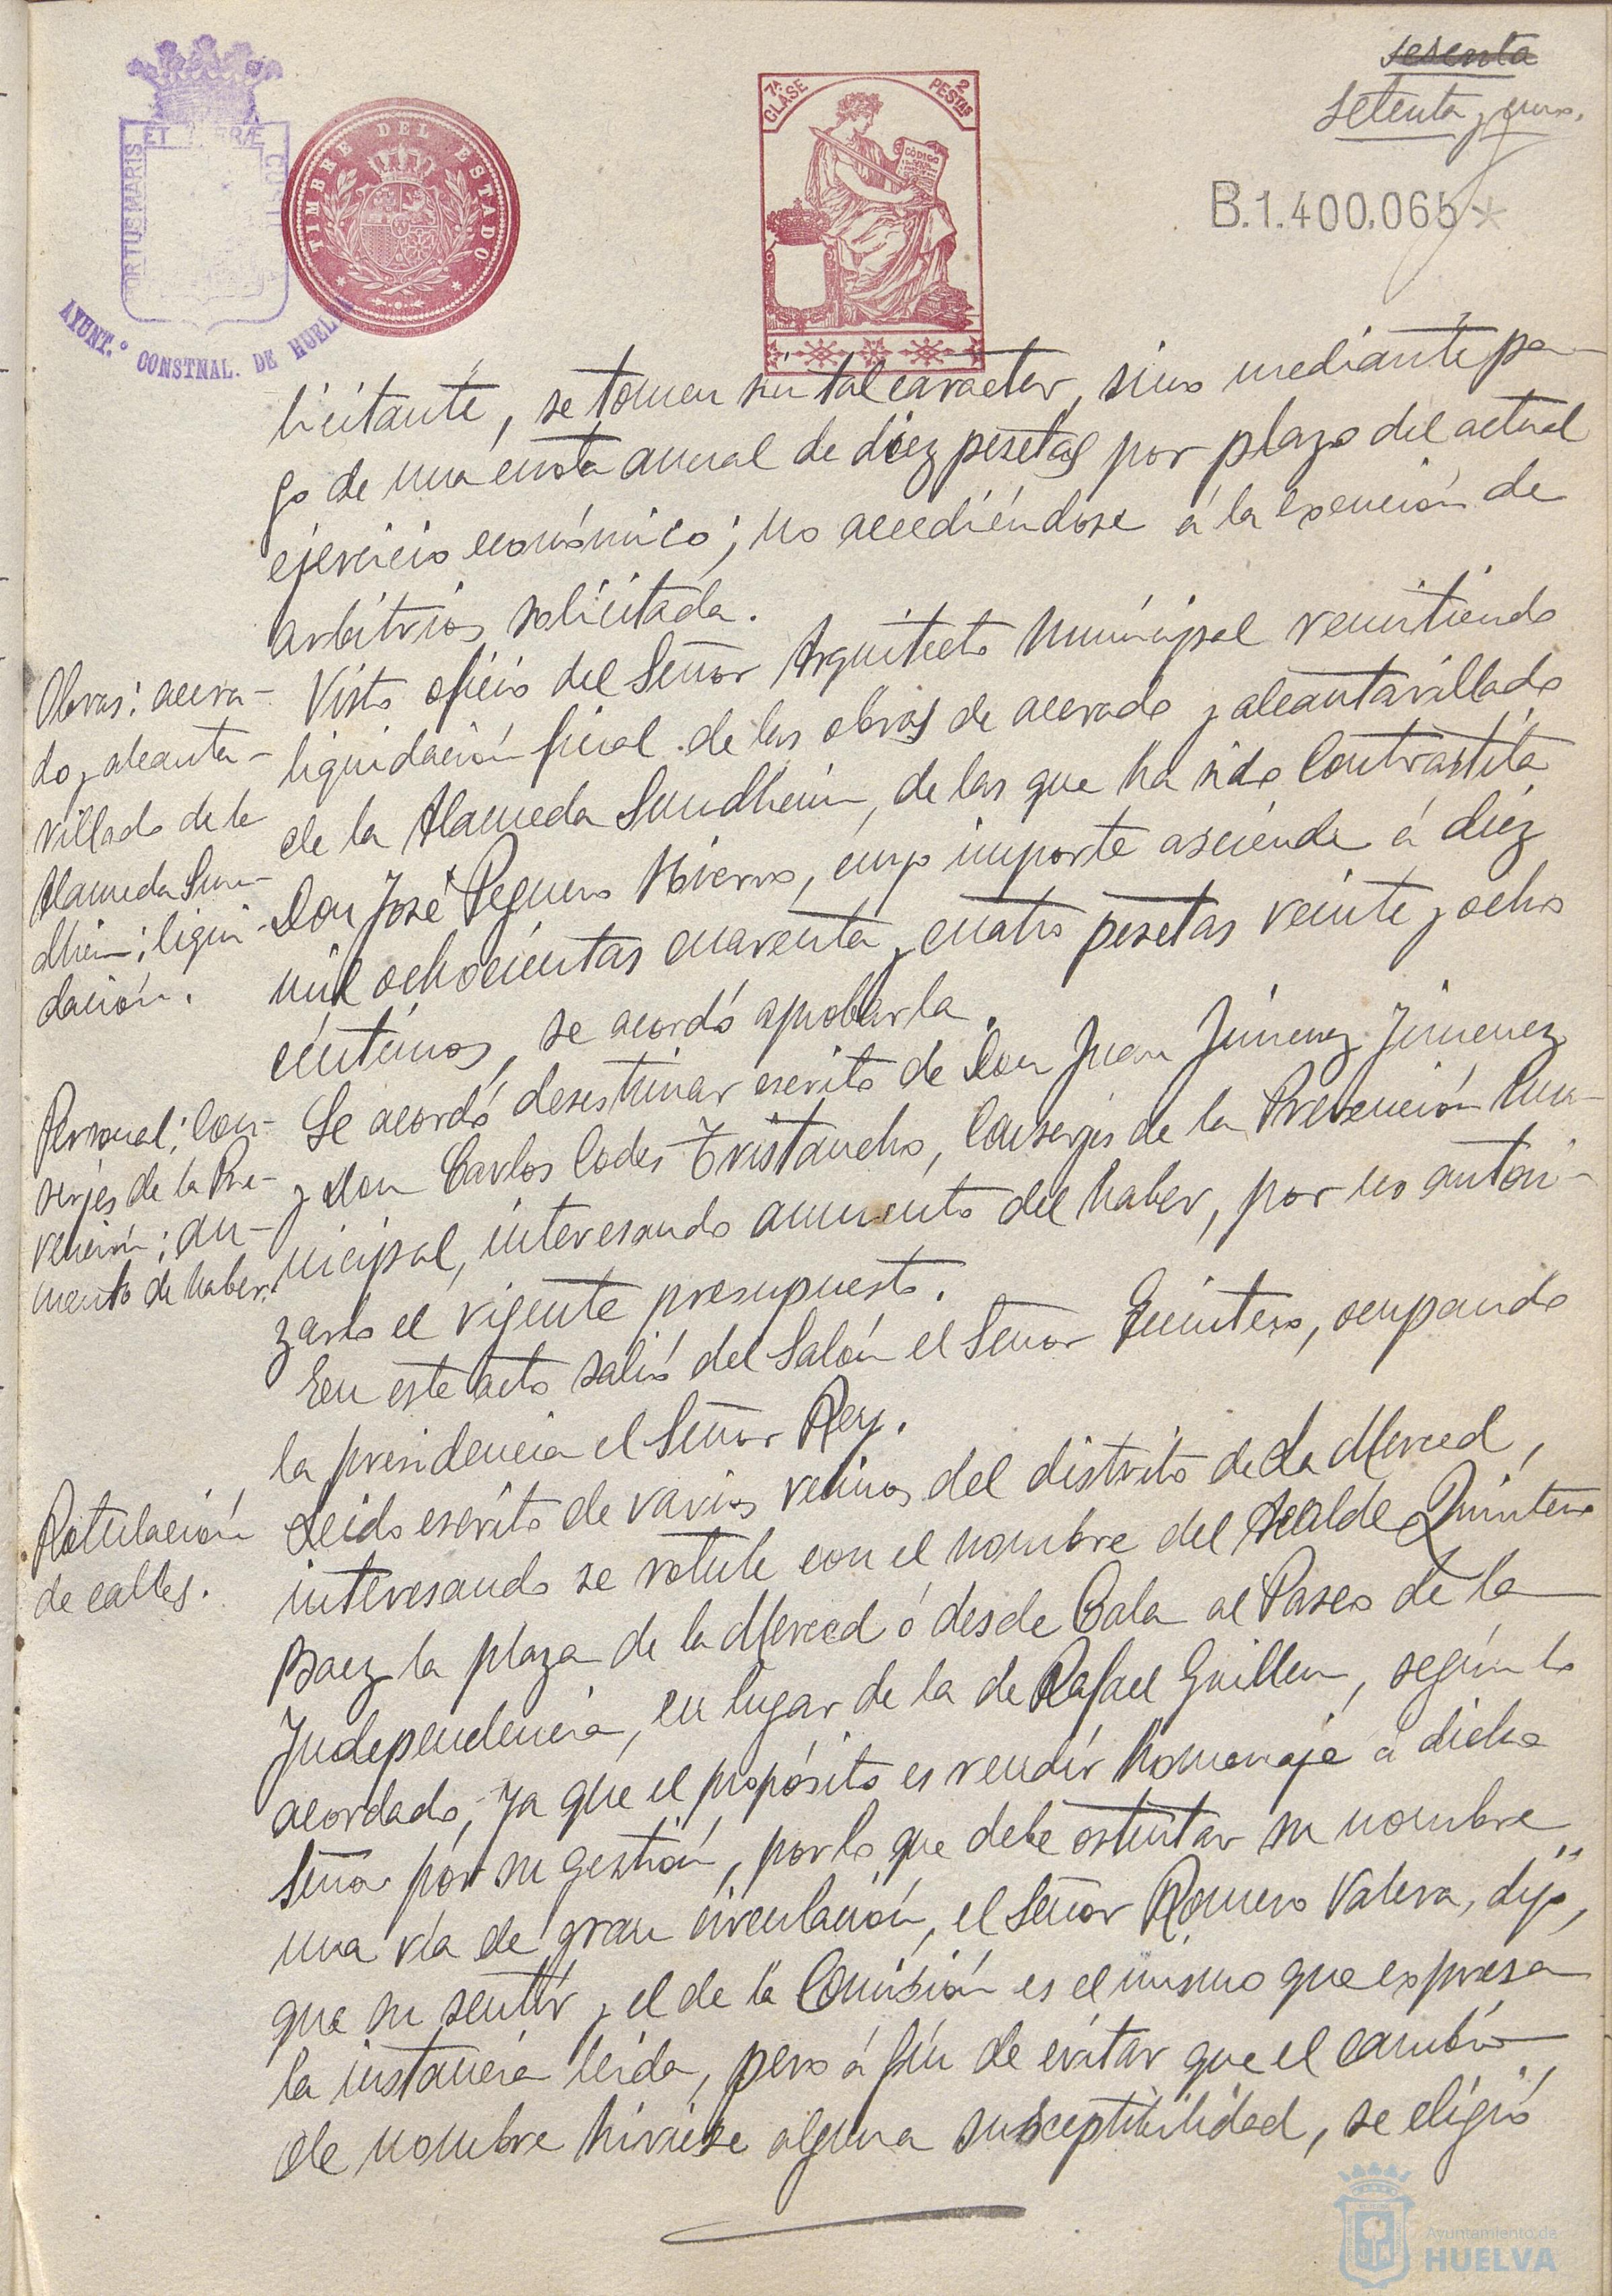 sesenta
setenta y uno.
7ª CLASE
2 PESTAS
CÓDIGO
TIMBRE DEL ESTADO
PORTUS MARIS ET TERRÆ
AYUNT.º CONSTNAL. DE HUELVA
B.1.400,065*
licitante, se tomen sin tal caracter, sino mediante pa-
go de una cuota anual de diez pesetas por plazo del actual
ejercicio económico; no accediéndose á la exención de
arbitrios solicitada.
Obras: acera-
do y alcanta-
rillado de la
Alameda Sun-
dhein; liqui-
dación.
Visto oficio del Señor Arquitecto Municipal remitiendo
liquidación final de las obras de acerado y alcantarillado
de la Alameda Sundhein, de las que ha sido Contratista
Don José Peguero Hierro, cuyo importe asciende á diez
mil ochocientas cuarenta y cuatro pesetas veinte y ocho
céntimos, se acordó aprobarla.
Personal; Con-
serjes de la Pre-
vención; au-
mento de haber.
Se acordó desestimar escrito de Don Juan Jimenez Jimenez
y Don Carlos Codes Tristancho, Conserjes de la Prevención Mu-
nicipal, interesando aumento del haber, por no autori-
zarlo el vigente presupuesto.
En este acto salió del Salón el Señor Quintero, ocupando
la presidencia el Señor Rey.
Rotulación
de calles.
Leido escrito de varios vecinos del distrito de La Merced,
interesando se rotule con el nombre del Alcalde Quintero
Baez la plaza de la Merced ó desde Cala al Paseo de la
Independencia, en lugar de la de Rafael Guillen, según lo
acordado, ya que el propósito es rendir homenaje á dicho
Señor por su gestión, por lo que debe ostentar su nombre
una vía de gran circulación, el Señor Romero Valera, dijo,
que su sentir y el de la Comisión es el mismo que expresa
la instancia leida, pero á fin de evitar que el cambio
de nombre hiriese alguna susceptibilidad, se eligió
Ayuntamiento de
HUELVA